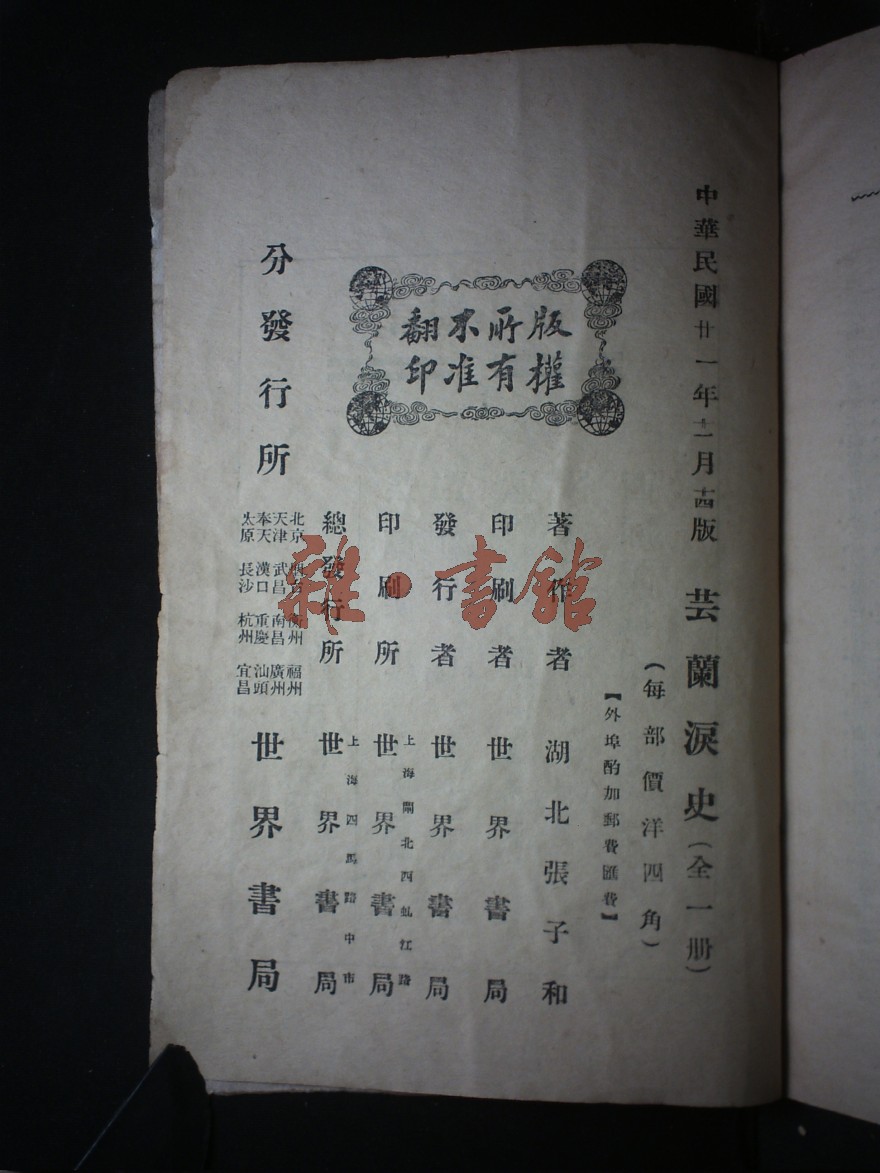 中華民國廿一年十一月十四版
芸蘭淚史（全一册）
（每部價洋四角）
【外埠酌加郵費匯費】
版權
所有
不准
翻印
著作者 湖北張子和
印刷者 世界書局
發行者 世界書局
印刷所 上海閘北西虬江路 世界書局
總發行所 上海四馬路中市 世界書局
分發行所
北京 衡州 福州
天津 武昌 南昌 廣州
奉天 漢口 重慶 汕頭
太原 長沙 杭州 宜昌
世界書局
雜·書館